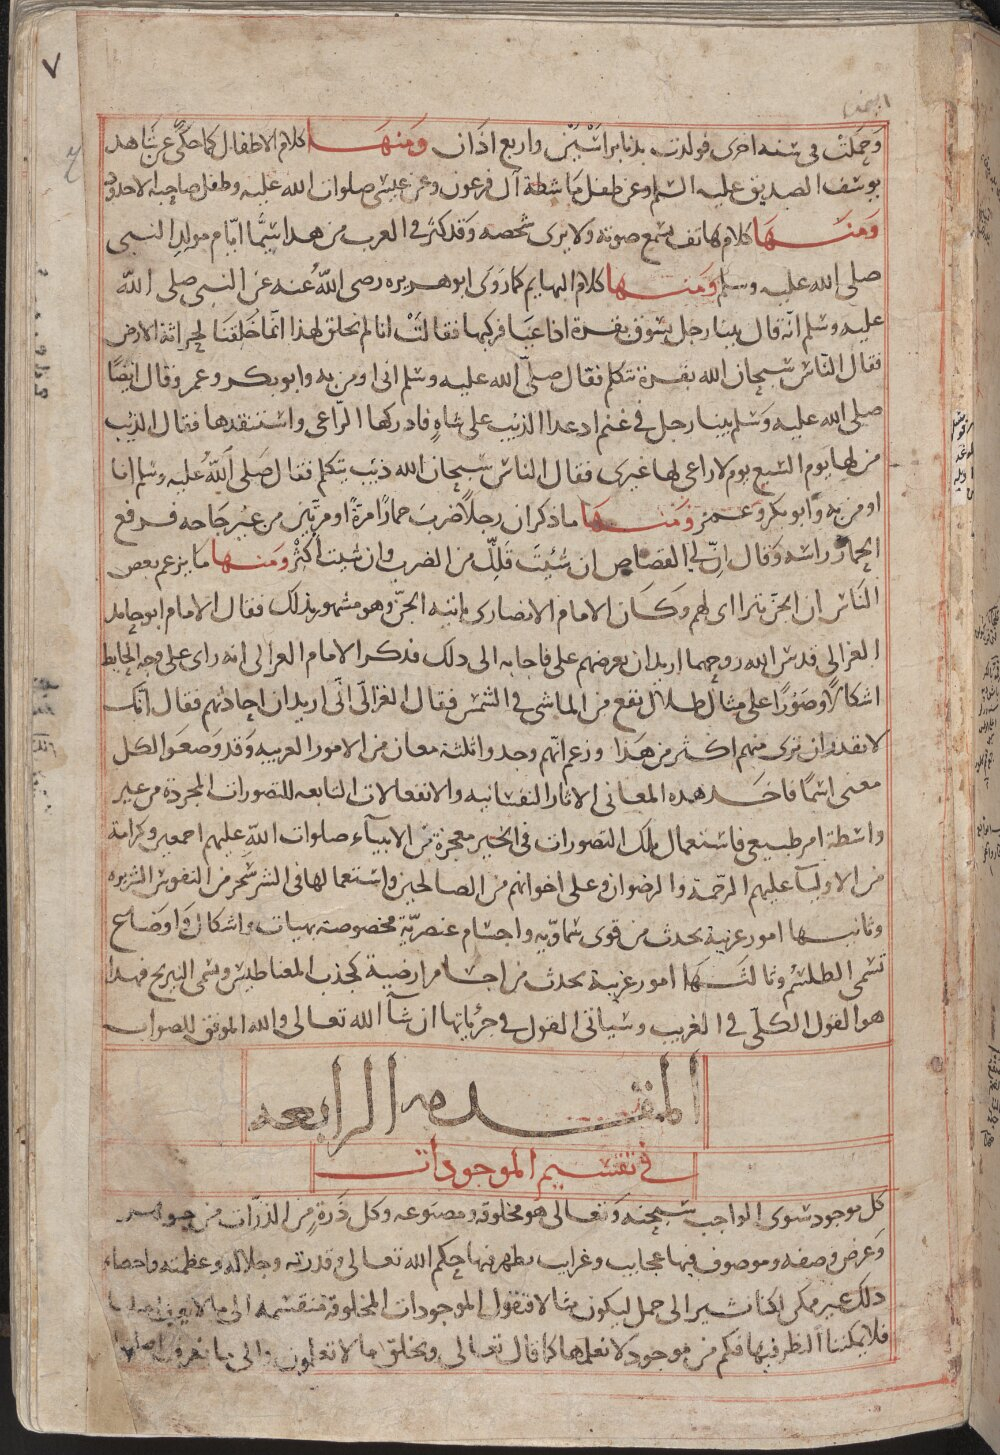 ٧
وحملت في سنه اخرى فولدت بدنا براسين واربع اذان ومنها كلام الاطفال كما حكى عن شاهد
يوسف الصديق عليه السلم وعن طفل ماشطة آل فرعون وعن عيسى صلوات الله عليه وطفل صاحب الاخدود
ومنها كلام هاتف يسمع صوته ولا يرى شخصه وقد كثر في العرب من هذا سيما ايام مولد النبي
صلى الله عليه وسلم ومنها كلام البهايم كما روى ابو هريره رضى الله عنه عن النبي صلى الله
عليه وسلم انه قال بينا رجل يسوق بقرة اذا عيا فركبها فقالت انا لم نخلق لهذا انما خلقنا لحراثة الارض
فقال الناس سبحان الله بقرة تتكلم فقال صلى الله عليه وسلم انى اومن به وابو بكر وعمر وقال ايضا
صلى الله عليه وسلم بينا رجل في غنم اذ عدا الذئب على شاه فادركها الراعى واستنقدها فقال الذئب
من لها يوم السبع يوم لا راعى لها غيرى فقال الناس سبحان الله ذئب يتكلم فقال صلى الله عليه وسلم انا
اومن به وابو بكر وعمر ومنها ما ذكر ان رجلا ضرب حمارا مرة او مرتين من غير حاجه فرفع
الحمار راسه وقال الى القصاص ان شئت قلل من الضرب وان شئت اكثر ومنها ما يزعم بعض
الناس ان الجن تتراآى لهم وكان الامام الانصارى ياتيه الجن وهو مشهور بذلك فقال الامام ابو حامد
الغزالي قدس الله روحهما اريد ان تعرضهم على فاجابه الى ذلك فذكر الامام الغزالى انه راى على وجه الحايط
اشكالا وصورا على مثال ظلال تقع من الماشى في الشمس فقال الغزالى انى اريد ان احادثهم فقال انك
لا تقدر ان ترى منهم اكثر من هذا وزعم انهم وجدوا ثلثة معان من الامور الغريبه وقد وضعوا لكل
معنى اسما فاحدها هذه المعانى الاثار النفسانيه والانفعالات التابعه للتصورات المجردة من غير
واسطة امر طبيعى فاستعمال تلك التصورات في الخير معجزة من الانبيآء صلوات الله عليهم اجمعين وكرامة
من الاولياء عليهم الرحمة والرضوان وعلى اخوانهم من الصالحين واستعمالها في الشر سحر من النفوس الشريره
وثانيها امور غريبة يحدث من قوى سماويه واجسام عنصرية مخصوصة بهيات واشكال واوضاع
تسمى الطلسم وثالثها امور غريبة يحدث من اجسام ارضية كجذب المغناطيس ويسمى النيرنج فهذا
هو القول الكلى في الغريب وسياتى القول في جزئياتها ان شآ الله تعالى والله الموفق للصواب
المقدمه الرابعه
في تقسيم الموجودات
كل موجود سوى الواجب سبحنه وتعالى هو مخلوقه ومصنوعه وكل ذرة من الذرات من جوهر
وعرض وصفه وموصوف فيها عجايب وغرايب يظهر فيها حكم الله تعالى وقدرته وجلاله وعظمته واحصاء
ذلك غير ممكن لكنا نشير الى جمل ليكون مثالا فنقول الموجودات المخلوقة منقسمة الى ما لا يعرف اصلها
فلا يمكننا النظر فيها فكم من موجود لا نعلمها كما قال تعالى ويخلق ما لا تعلمون والى ما نعرف اصلها